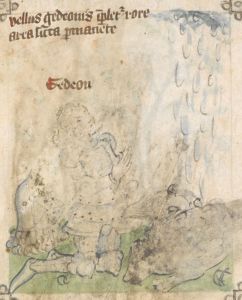 vellus gedeonis iplet᷑ rore
area sicca pmanete
Gedeon